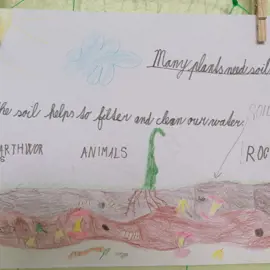 Many plants need soil
he soil helps to filter and clean our water.
SOIL
ARTHWOR
S
ANIMALS
ROC